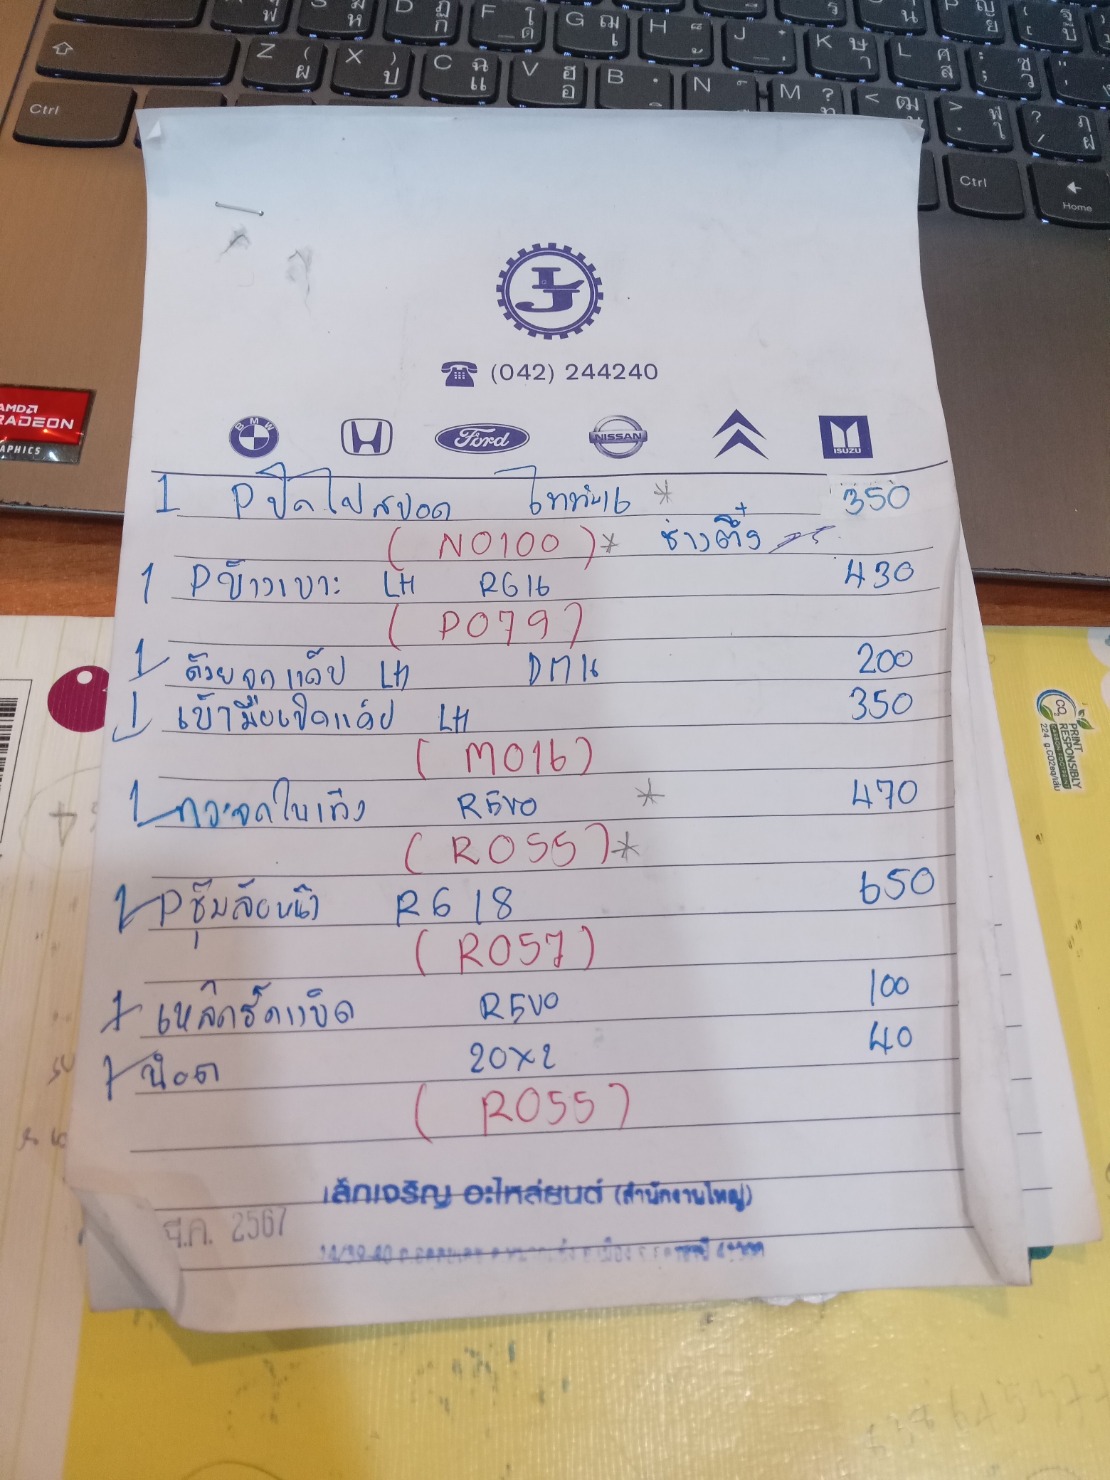 (042) 244240
BMW
Ford
NISSAN
ISUZU
1 Pปิดไฟสปอต ไททัน16 * 350
(N0100)* ช่างติ๋ง
1 Pข้างเบาะ LH RG16 430
(P079)
1 ด้วยจุกแค๊ป LH DM16 200
1 เบ้ามือเปิดแค๊ป LH 350
(M016)
1 กระจกใบเท้ง REVO * 470
(R055)*
1 Pซุ้มล้อหน้า RG 18 650
(R057)
1 เหล็กรัดแบ็ต REVO 100
1 น๊อต 20x2 40
(R055)
เล็กเจริญ อะไหล่ยนต์ (สำนักงานใหญ่)
ย.ค. 2567
AMD
RADEON
GRAPHICS
PRINT
RESPONSIBLY
Ctrl
Z X C V B N M
Ctrl
Home